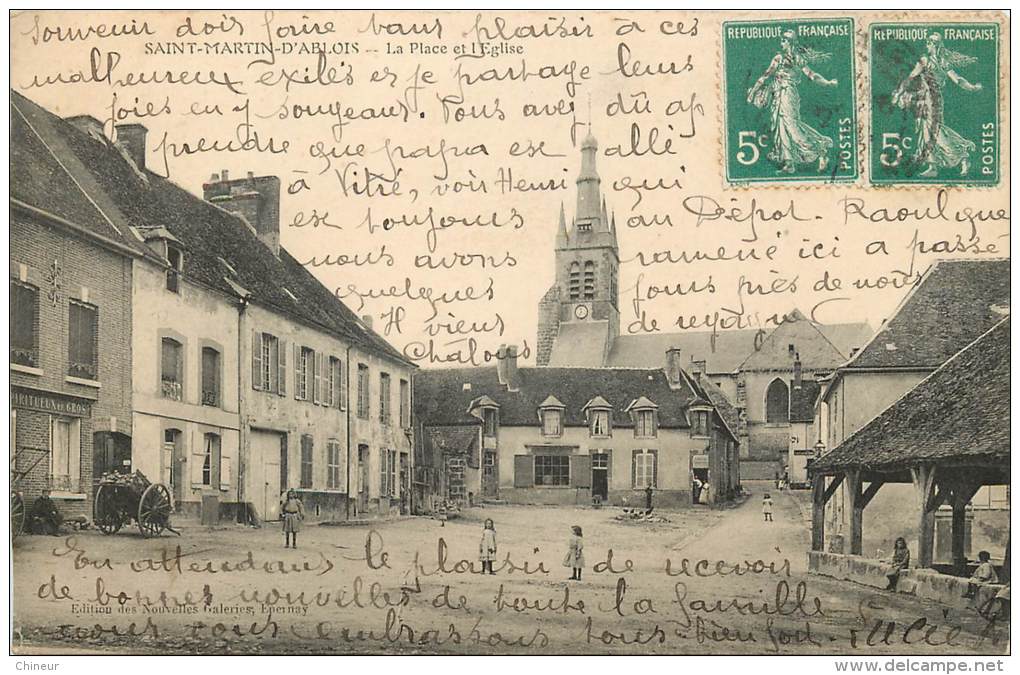 Souvenir dois faire bans plaisir à ces
SAINT-MARTIN-D'ABLOIS -- La Place et l'Eglise
malheureux exilés et je partage leurs
joies en y songeant. Vous avez dû ap
prendre que papa est allé
à Vitré, voir Henri qui
est toujours au Dépot. Raoul que
nous avons ramené ici a passé
quelques jours près de nous
H vient de
Châlons
REPUBLIQUE FRANÇAISE
5c POSTES
REPUBLIQUE FRANÇAISE
5c POSTES
SPIRITUEUX EN GROS
En attendant le plaisir de recevoir
de bonnes nouvelles de toute la famille
Edition des Nouvelles Galeries, Epernay
nous vous embrassons tous bien fort
Chineur
www.delcampe.net